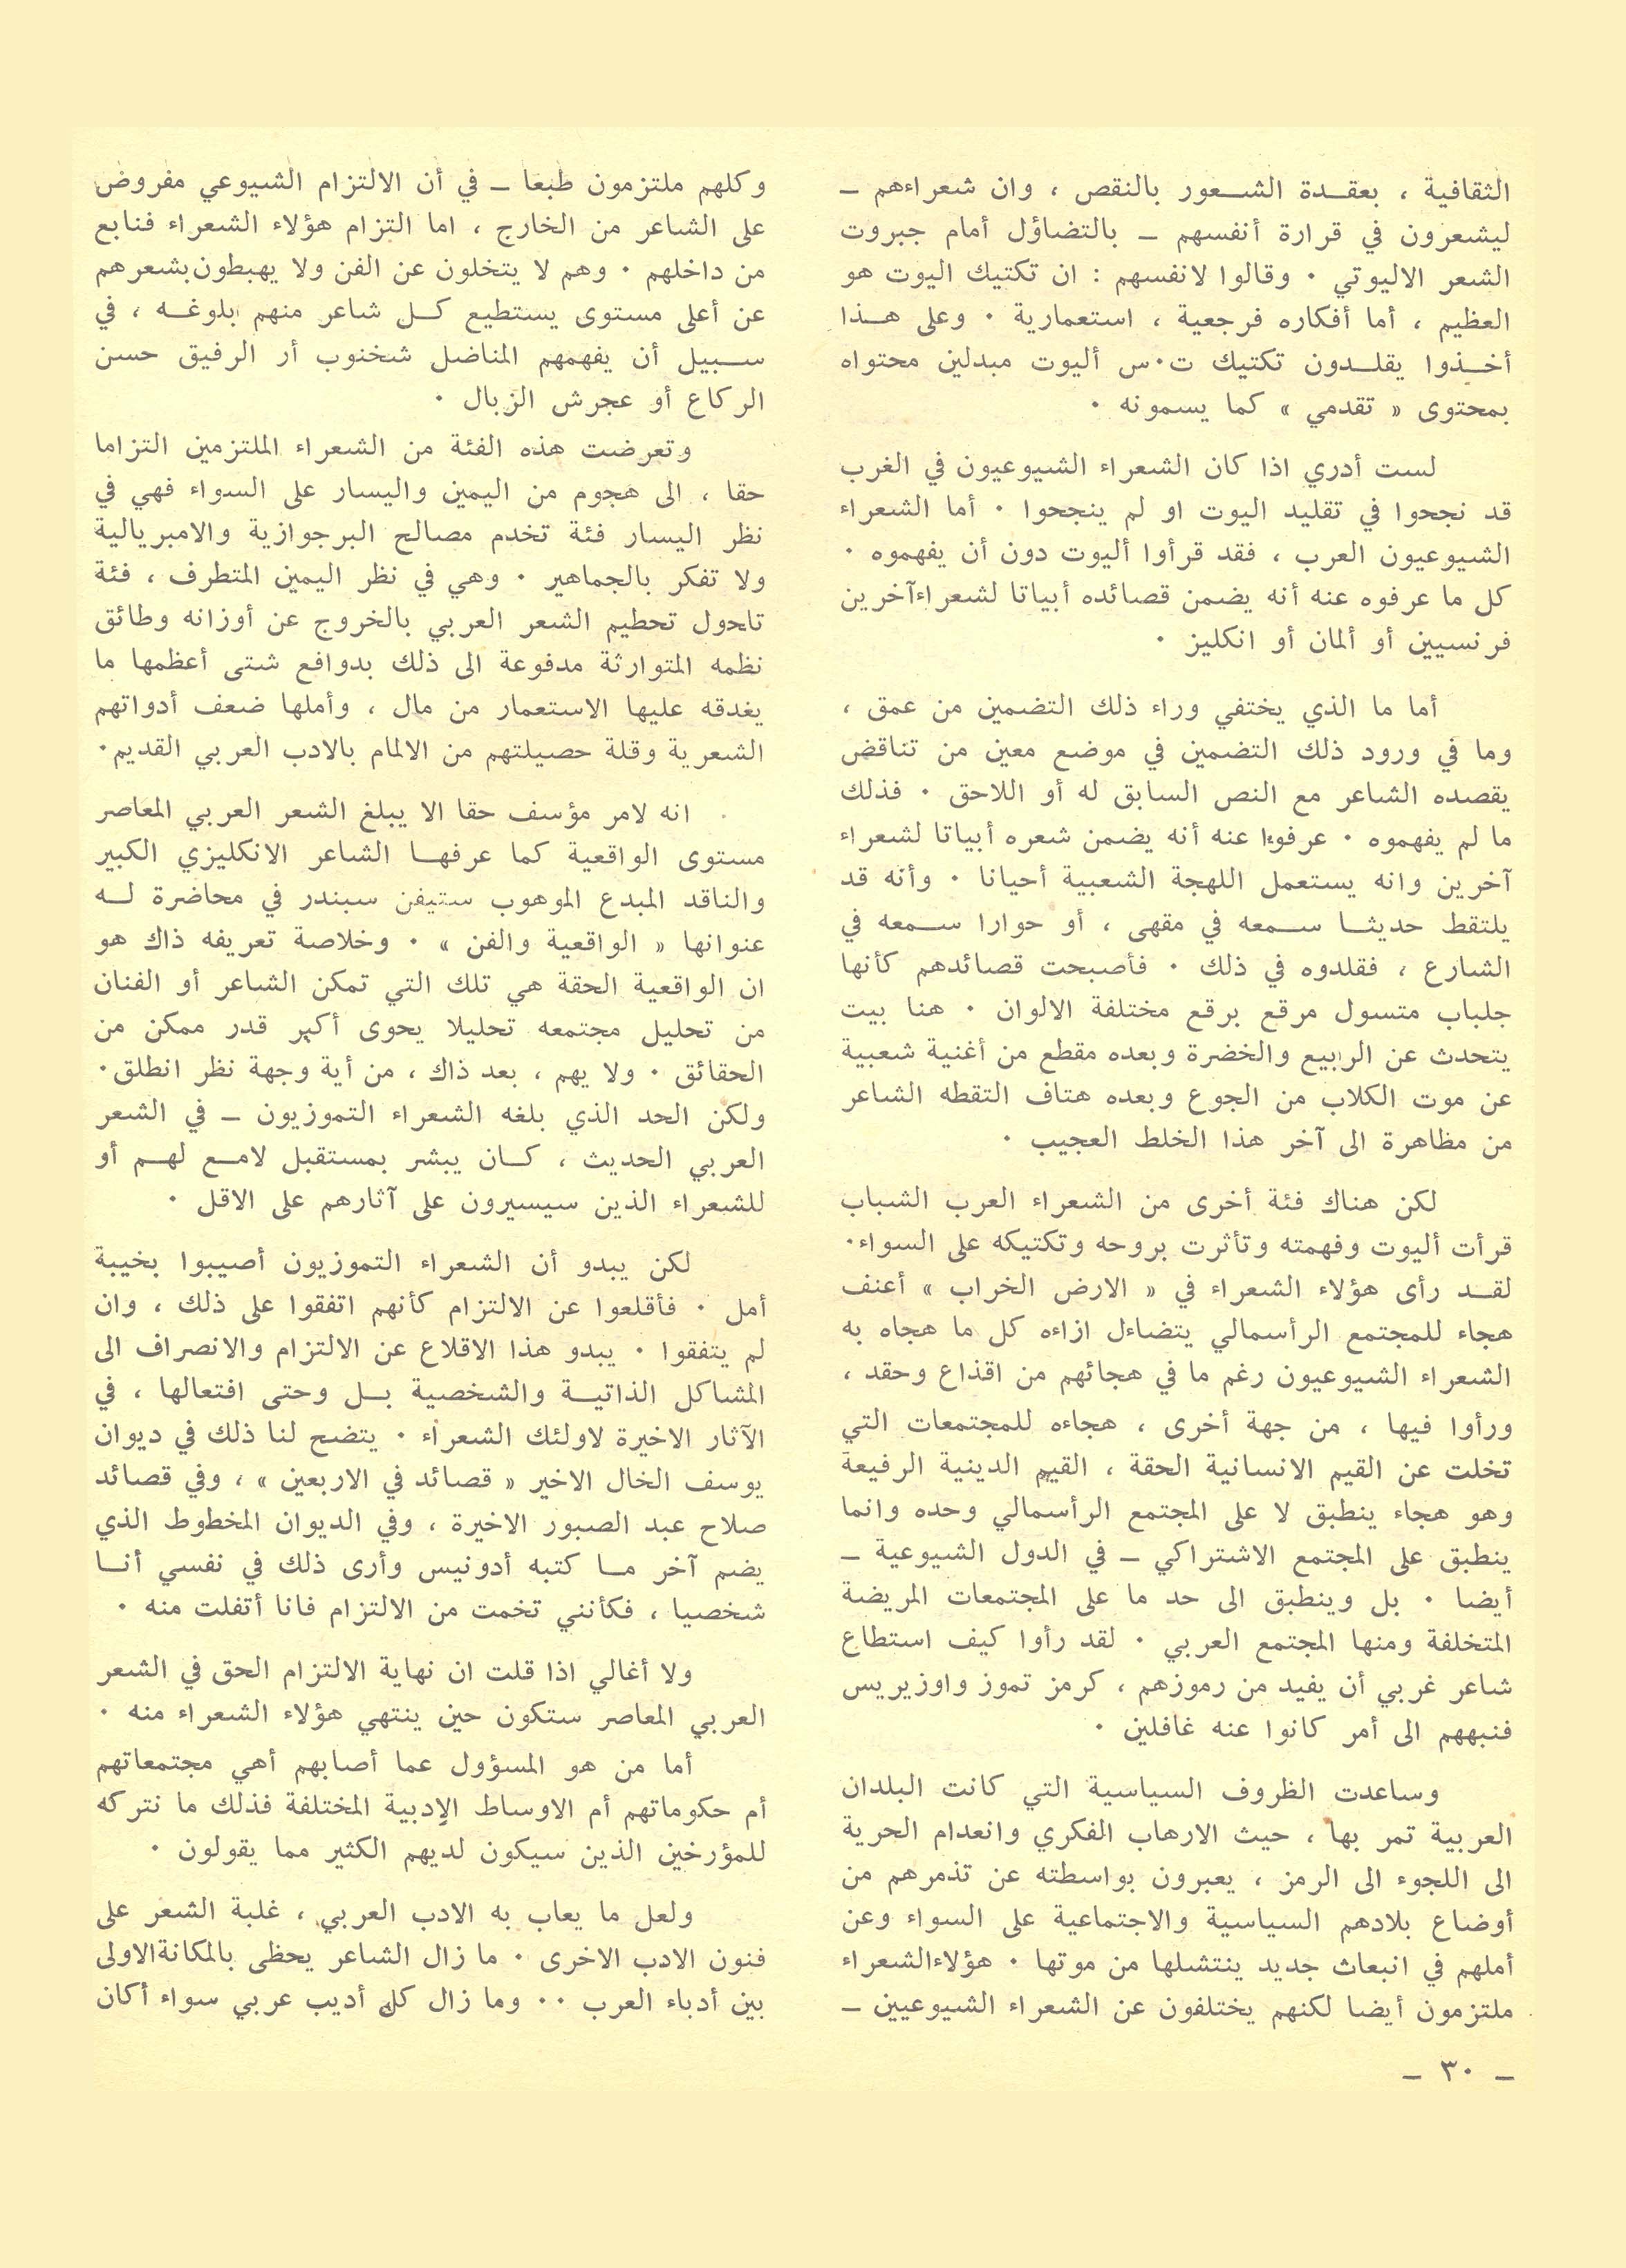 الثقافية ، بعقدة الشعور بالنقص ، وان شعراءهم ـ
ليشعرون في قرارة أنفسهم ـ بالتضاؤل أمام جبروت
الشعر الاليوتي ٠ وقالوا لانفسهم : ان تكتيك اليوت هو
العظيم ، أما أفكاره فرجعية ، استعمارية ٠ وعلى هذا
أخذوا يقلدون تكتيك ت٠س أليوت مبدلين محتواه
بمحتوى « تقدمي » كما يسمونه ٠
لست أدري اذا كان الشعراء الشيوعيون في الغرب
قد نجحوا في تقليد اليوت او لم ينجحوا ٠ أما الشعراء
الشيوعيون العرب ، فقد قرأوا أليوت دون أن يفهموه ٠
كل ما عرفوه عنه أنه يضمن قصائده أبياتا لشعراءآخرين
فرنسيين أو ألمان أو انكليز ٠
أما ما الذي يختفي وراء ذلك التضمين من عمق ،
وما في ورود ذلك التضمين في موضع معين من تناقض
يقصده الشاعر مع النص السابق له أو اللاحق ٠ فذلك
ما لم يفهموه ٠ عرفوا عنه أنه يضمن شعره أبياتا لشعراء
آخرين وانه يستعمل اللهجة الشعبية أحيانا ٠ وأنه قد
يلتقط حديثا سمعه في مقهى ، أو حوارا سمعه في
الشارع ، فقلدوه في ذلك ٠ فأصبحت قصائدهم كأنها
جلباب متسول مرقع برقع مختلفة الالوان ٠ هنا بيت
يتحدث عن الربيع والخضرة وبعده مقطع من أغنية شعبية
عن موت الكلاب من الجوع وبعده هتاف التقطه الشاعر
من مظاهرة الى آخر هذا الخلط العجيب ٠
لكن هناك فئة أخرى من الشعراء العرب الشباب
قرأت أليوت وفهمته وتأثرت بروحه وتكتيكه على السواء٠
لقد رأى هؤلاء الشعراء في « الارض الخراب » أعنف
هجاء للمجتمع الرأسمالي يتضاءل ازاءه كل ما هجاه به
الشعراء الشيوعيون رغم ما في هجائهم من اقذاع وحقد ،
ورأوا فيها ، من جهة أخرى ، هجاءه للمجتمعات التي
تخلت عن القيم الانسانية الحقة ، القيم الدينية الرفيعة
وهو هجاء ينطبق لا على المجتمع الرأسمالي وحده وانما
ينطبق على المجتمع الاشتراكي ـ في الدول الشيوعية ـ
أيضا ٠ بل وينطبق الى حد ما على المجتمعات المريضة
المتخلفة ومنها المجتمع العربي ٠ لقد رأوا كيف استطاع
شاعر غربي أن يفيد من رموزهم ، كرمز تموز واوزيريس
فنبههم الى أمر كانوا عنه غافلين ٠
وساعدت الظروف السياسية التي كانت البلدان
العربية تمر بها ، حيث الارهاب الفكري وانعدام الحرية
الى اللجوء الى الرمز ، يعبرون بواسطته عن تذمرهم من
أوضاع بلادهم السياسية والاجتماعية على السواء وعن
أملهم في انبعاث جديد ينتشلها من موتها ٠ هؤلاءالشعراء
ملتزمون أيضا لكنهم يختلفون عن الشعراء الشيوعيين ـ
وكلهم ملتزمون طبعا ـ في أن الالتزام الشيوعي مفروض
على الشاعر من الخارج ، اما التزام هؤلاء الشعراء فنابع
من داخلهم ٠ وهم لا يتخلون عن الفن ولا يهبطون بشعرهم
عن أعلى مستوى يستطيع كل شاعر منهم بلوغه ، في
سبيل أن يفهمهم المناضل شخنوب أر الرفيق حسن
الركاع أو عجرش الزبال ٠
وتعرضت هذه الفئة من الشعراء الملتزمين التزاما
حقا ، الى هجوم من اليمين واليسار على السواء فهي في
نظر اليسار فئة تخدم مصالح البرجوازية والامبريالية
ولا تفكر بالجماهير ٠ وهي في نظر اليمين المتطرف ، فئة
تاحول تحطيم الشعر العربي بالخروج عن أوزانه وطائق
نظمه المتوارثة مدفوعة الى ذلك بدوافع شتى أعظمها ما
يغدقه عليها الاستعمار من مال ، وأملها ضعف أدواتهم
الشعرية وقلة حصيلتهم من الالمام بالادب العربي القديم٠
انه لامر مؤسف حقا الا يبلغ الشعر العربي المعاصر
مستوى الواقعية كما عرفها الشاعر الانكليزي الكبير
والناقد المبدع الموهوب ستيفن سبندر في محاضرة له
عنوانها « الواقعية والفن » ٠ وخلاصة تعريفه ذاك هو
ان الواقعية الحقة هي تلك التي تمكن الشاعر أو الفنان
من تحليل مجتمعه تحليلا يحوى أكبر قدر ممكن من
الحقائق ٠ ولا يهم ، بعد ذاك ، من أية وجهة نظر انطلق٠
ولكن الحد الذي بلغه الشعراء التموزيون ـ في الشعر
العربي الحديث ، كان يبشر بمستقبل لامع لهم أو
للشعراء الذين سيسيرون على آثارهم على الاقل ٠
لكن يبدو أن الشعراء التموزيون أصيبوا بخيبة
أمل ٠ فأقلعوا عن الالتزام كأنهم اتفقوا على ذلك ، وان
لم يتفقوا ٠ يبدو هذا الاقلاع عن الالتزام والانصراف الى
المشاكل الذاتية والشخصية بل وحتى افتعالها ، في
الآثار الاخيرة لاولئك الشعراء ٠ يتضح لنا ذلك في ديوان
يوسف الخال الاخير « قصائد في الاربعين » ، وفي قصائد
صلاح عبد الصبور الاخيرة ، وفي الديوان المخطوط الذي
يضم آخر ما كتبه أدونيس وأرى ذلك في نفسي أنا
شخصيا ، فكأنني تخمت من الالتزام فانا أتفلت منه ٠
ولا أغالي اذا قلت ان نهاية الالتزام الحق في الشعر
العربي المعاصر ستكون حين ينتهي هؤلاء الشعراء منه ٠
أما من هو المسؤول عما أصابهم أهي مجتمعاتهم
أم حكوماتهم أم الاوساط الإدبية المختلفة فذلك ما نتركه
للمؤرخين الذين سيكون لديهم الكثير مما يقولون ٠
ولعل ما يعاب به الادب العربي ، غلبة الشعر على
فنون الادب الاخرى ٠ ما زال الشاعر يحظى بالمكانةالاولى
بين أدباء العرب ٠٠ وما زال كل أديب عربي سواء أكان
ـ ٣٠ ـ